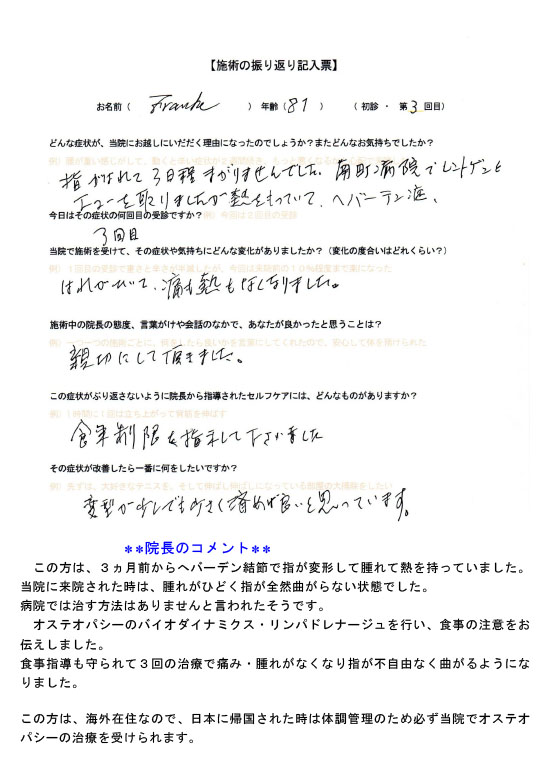 【施術の振り返り記入票】
お名前（ Frank ） 年齢（81 ） （ 初診 ・ 第 3 回目）
どんな症状が、当院にお越しにいだだく理由になったのでしょうか？またどんなお気持ちでしたか？
指がはれて3日程まがりませんでした。南町病院でレントゲンと
エコーを取りましたが熱をもっていて、ヘバーデン
今日はその症状の何回目の受診ですか？例）今回は2回目の受診
3回目
当院で施術を受けて、その症状や気持ちにどんな変化がありましたか？（変化の度合いはどれくらい？）
例）1回目の受診で重さと辛さが半減したが、今回は来院前の10%程度まで楽になった
はれがひいて、痛も熱もなくなりました。
施術中の院長の態度、言葉がけや会話のなかで、あなたが良かったと思うことは？
親切にして頂きました。
この症状がぶり返さないように院長から指導されたセルフケアには、どんなものがありますか？
例）1時間に1回は立ち上がって背筋を伸ばす
食事制限を指示して下さいました
その症状が改善したら一番に何をしたいですか？
変型が少しでも小さく済めば良いと思っています。
**院長のコメント**
この方は、３ヵ月前からヘバーデン結節で指が変形して腫れて熱を持っていました。
当院に来院された時は、腫れがひどく指が全然曲がらない状態でした。
病院では治す方法はありませんと言われたそうです。
オステオパシーのバイオダイナミクス・リンパドレナージュを行い、食事の注意をお
伝えしました。
食事指導も守られて３回の治療で痛み・腫れがなくなり指が不自由なく曲がるようにな
りました。
この方は、海外在住なので、日本に帰国された時は体調管理のため必ず当院でオステオ
パシーの治療を受けられます。